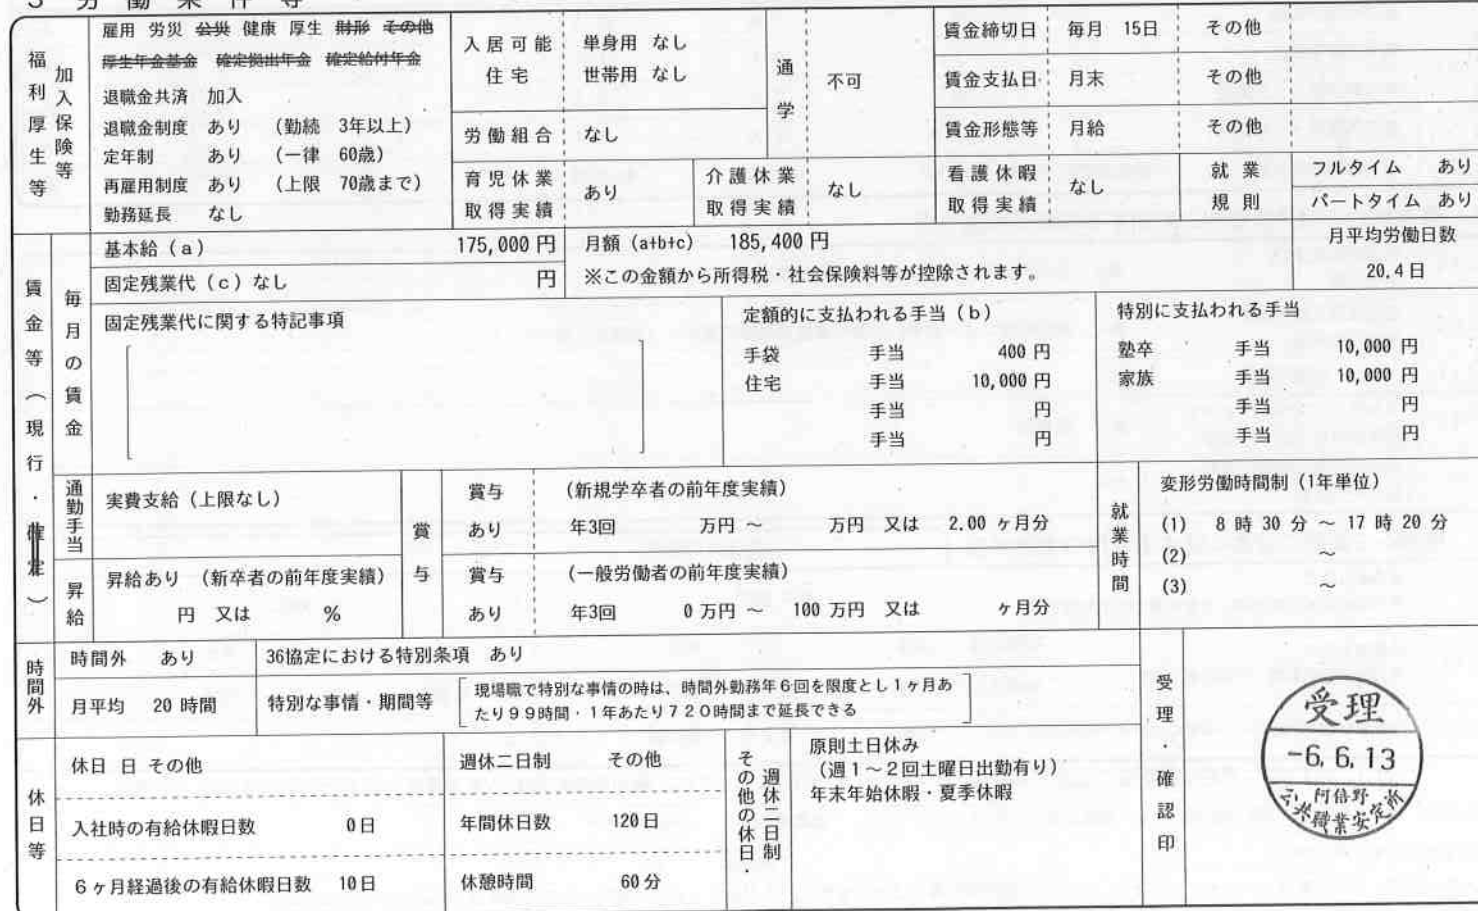 3 労働条件等
福利厚生等
加入保険等
雇用 労災 公災 健康 厚生 財形 その他
厚生年金基金 確定拠出年金 確定給付年金
退職金共済 加入
退職金制度 あり (勤続 3年以上)
定年制 あり (一律 60歳)
再雇用制度 あり (上限 70歳まで)
勤務延長 なし
入居可能住宅
単身用 なし
世帯用 なし
労働組合 なし
通学 不可
賃金締切日 毎月 15日 その他
賃金支払日 月末 その他
賃金形態等 月給 その他
育児休業取得実績 あり
介護休業取得実績 なし
看護休暇取得実績 なし
就業規則
フルタイム あり
パートタイム あり
賃金等(現行・確定)
毎月の賃金
基本給(a) 175,000 円
月額(a+b+c) 185,400 円
※この金額から所得税・社会保険料等が控除されます。
固定残業代(c)なし 円
月平均労働日数
20.4日
固定残業代に関する特記事項
定額的に支払われる手当(b)
手袋 手当 400 円
住宅 手当 10,000 円
手当 円
手当 円
特別に支払われる手当
塾卒 手当 10,000 円
家族 手当 10,000 円
手当 円
手当 円
通勤手当
実費支給(上限なし)
昇給
昇給あり (新卒者の前年度実績)
円 又は %
賞与
賞与 あり
(新規学卒者の前年度実績)
年3回 万円 ～ 万円 又は 2.00 ヶ月分
賞与 あり
(一般労働者の前年度実績)
年3回 0 万円 ～ 100 万円 又は ヶ月分
就業時間
変形労働時間制(1年単位)
(1) 8 時 30 分 ～ 17 時 20 分
(2) ～
(3) ～
時間外
時間外 あり
月平均 20 時間
36協定における特別条項 あり
特別な事情・期間等
現場職で特別な事情の時は、時間外勤務年6回を限度とし1ヶ月あ
たり99時間・1年あたり720時間まで延長できる
休日等
休日 日 その他
入社時の有給休暇日数 0日
6ヶ月経過後の有給休暇日数 10日
週休二日制 その他
年間休日数 120日
休憩時間 60分
週休二日制・その他の休日
原則土日休み
(週1～2回土曜日出勤有り)
年末年始休暇・夏季休暇
受理・確認印
受理
-6.6.13
阿倍野
公共職業安定所